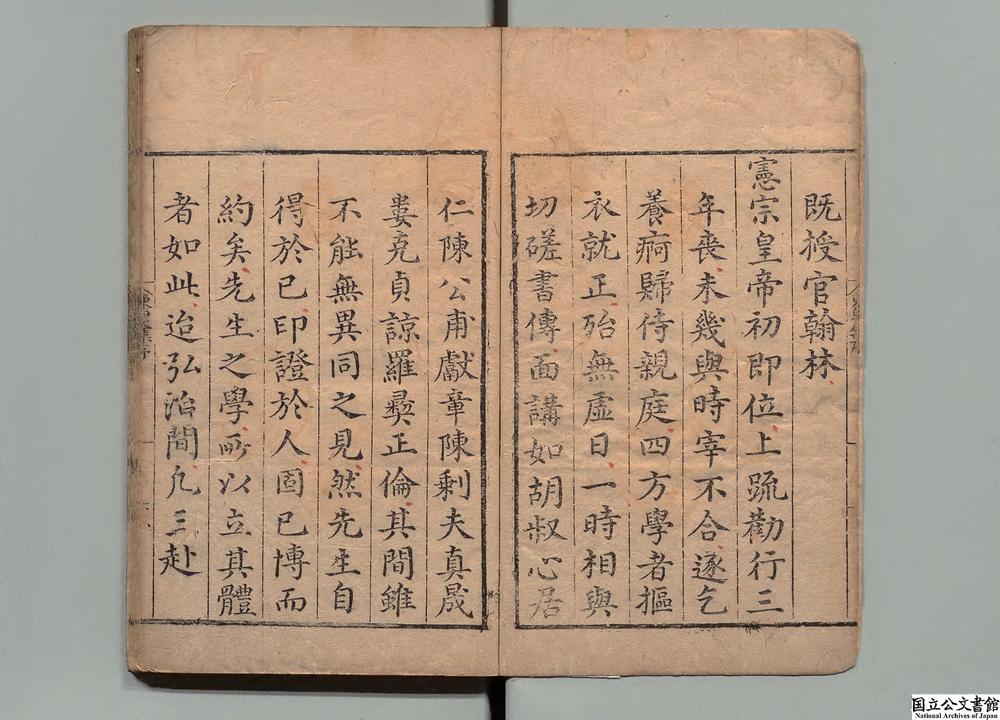 既授官翰林
憲宗皇帝初即位上䟽勸行三
年喪未幾與時宰不合遂乞
養痾歸侍親庭四方學者摳
衣就正殆無虛日一時相與
切磋書傳面講如胡叔心居
仁陳公甫獻章陳剩夫真晟
婁克貞諒羅彝正倫其間雖
不能無異同之見然先生自
得於已印證於人固已博而
約矣先生之學所以立其體
者如此迨弘治間凢三赴
国立公文書館
National Archives of Japan